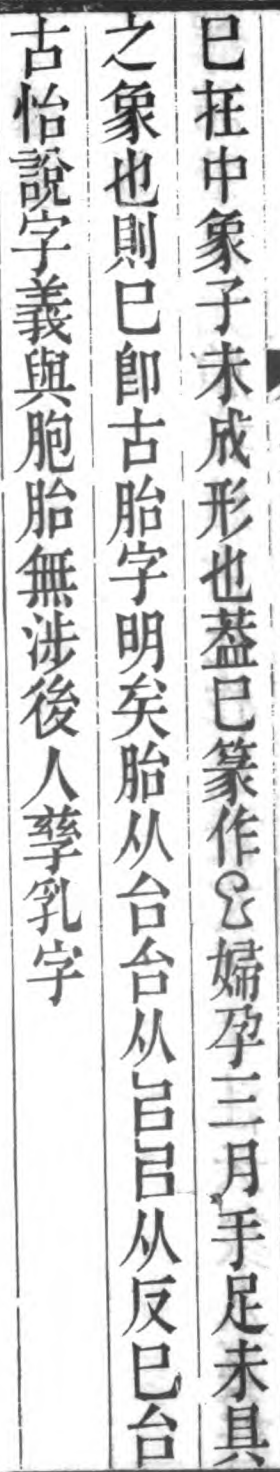 巳在中象子未成形也葢巳篆作𢀳婦孕三月手足未具
之象也則巳卽古胎字明矣胎从台台从㠯㠯从反巳台
古怡說字義與胞胎無涉後人孳乳字